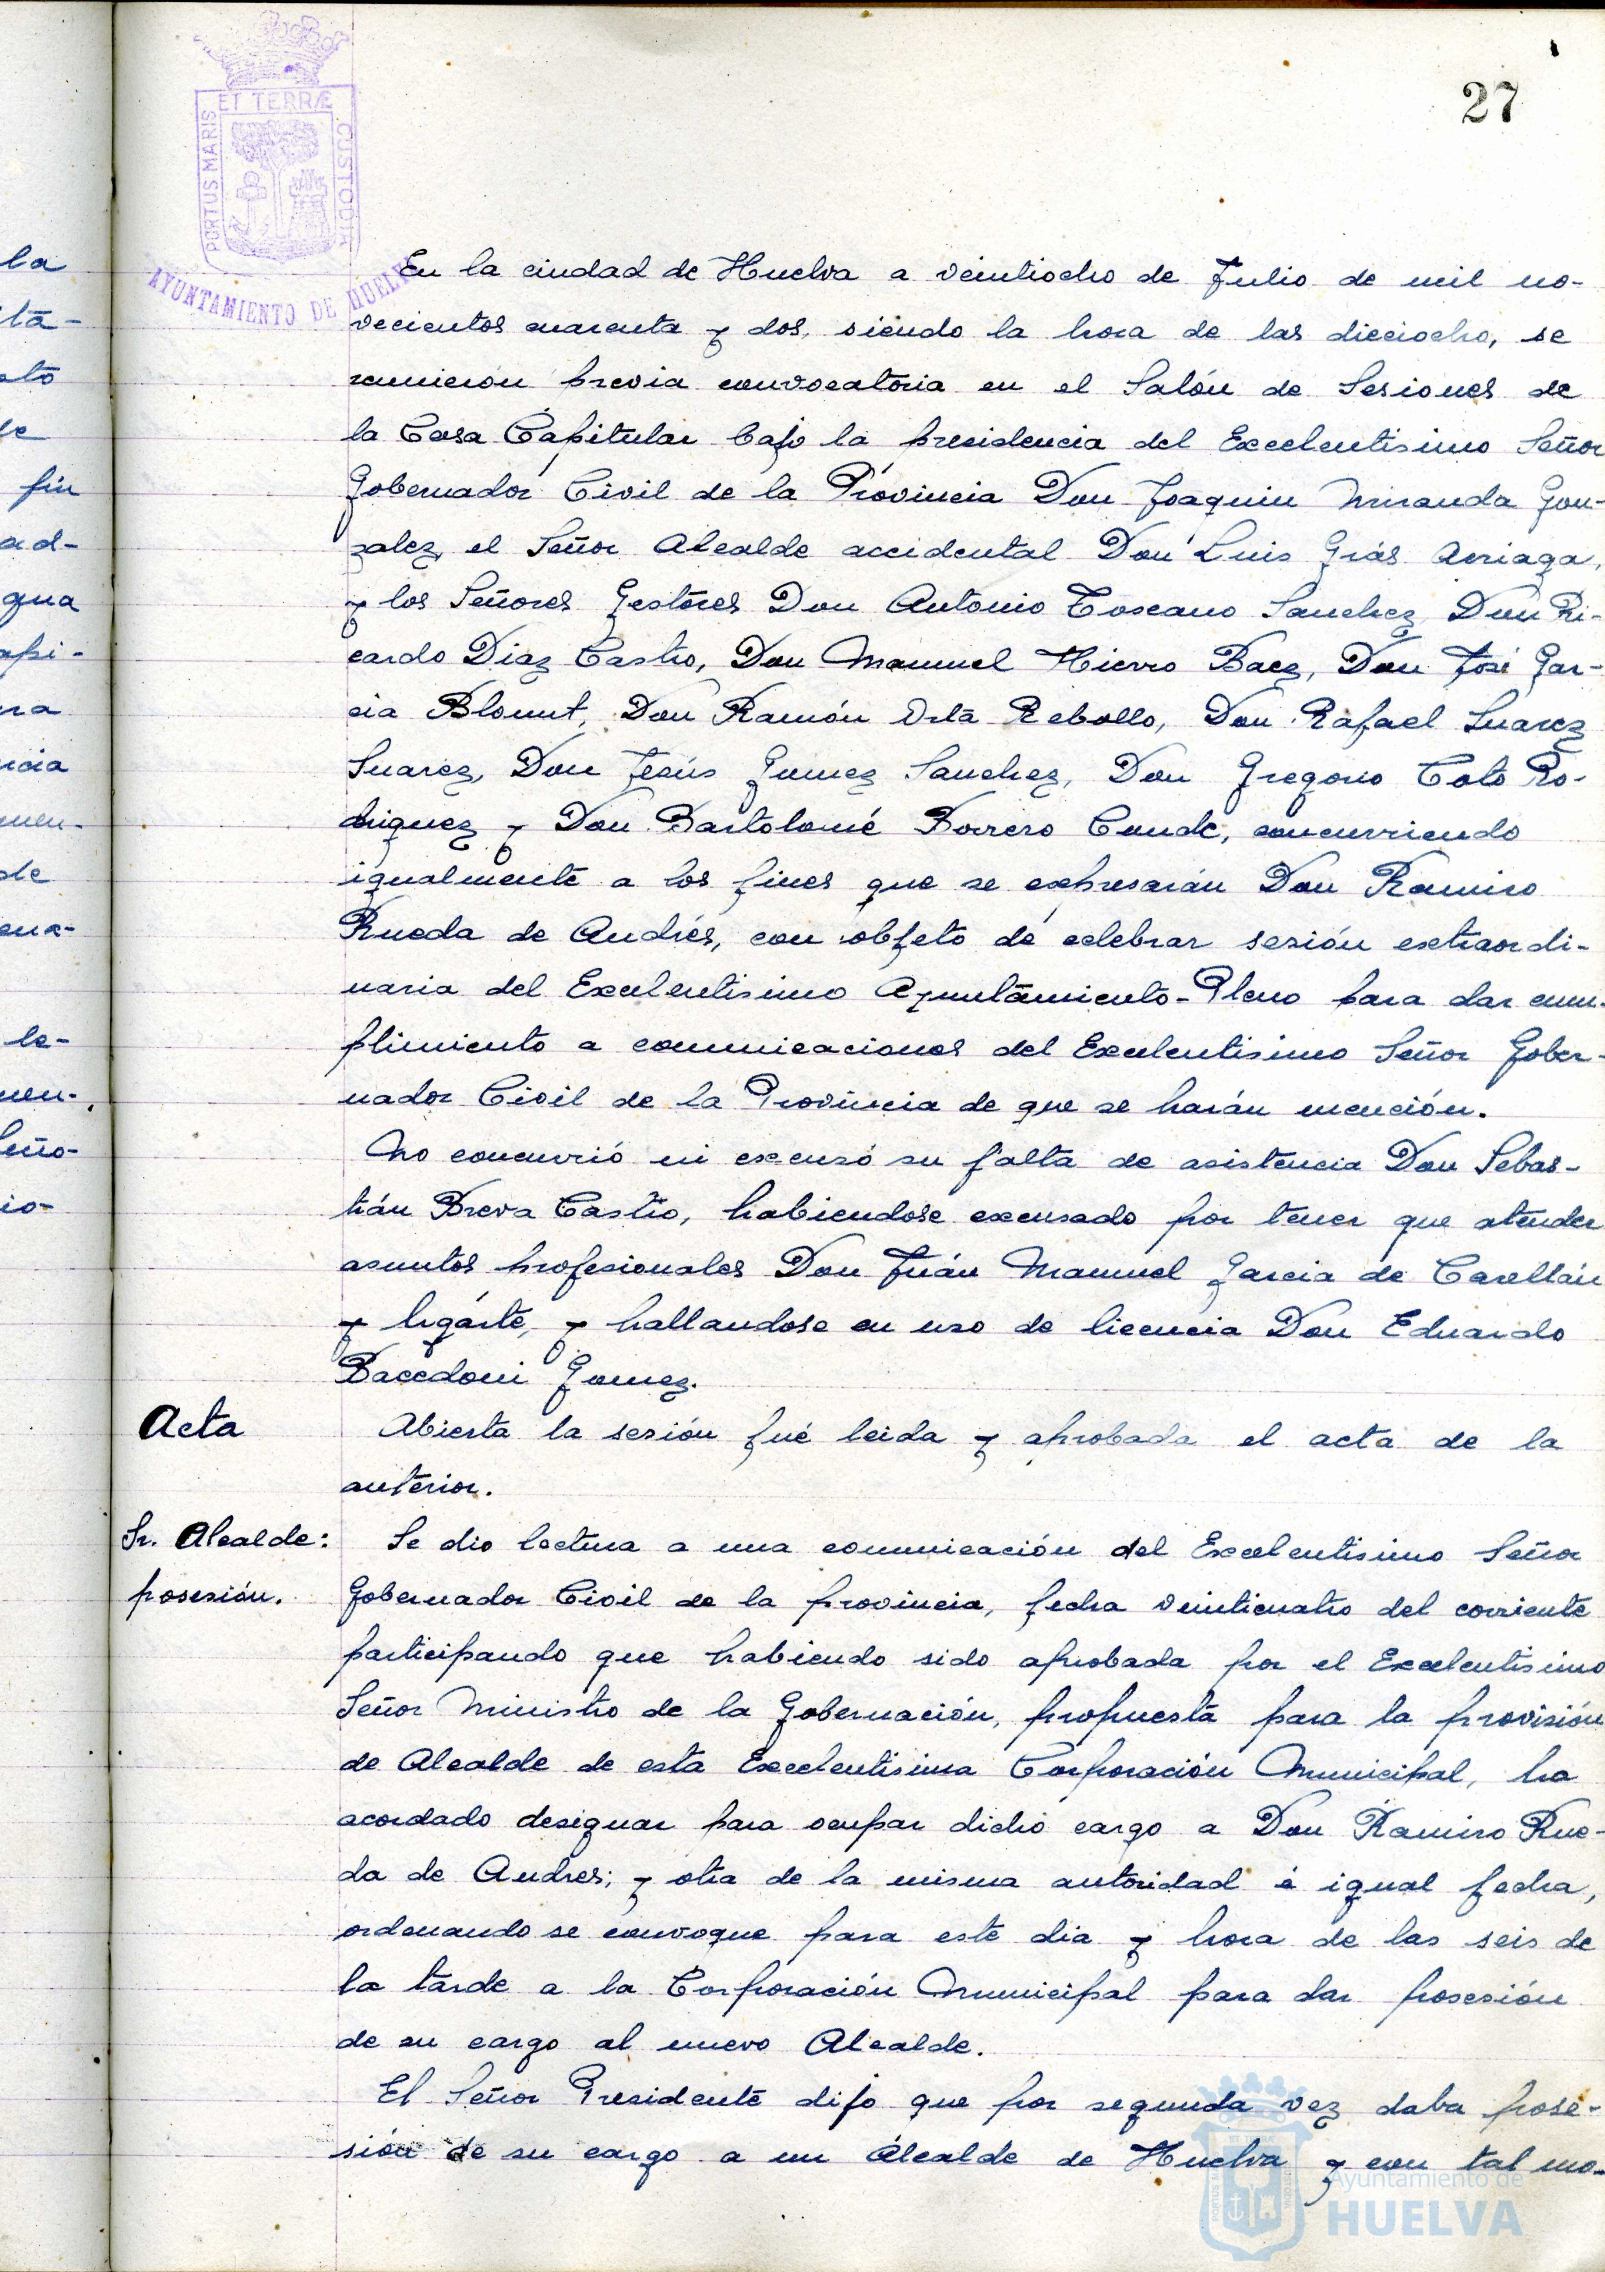 27
ET TERRÆ
PORTUS MARIS
CUSTODIA
AYUNTAMIENTO DE HUELVA
En la ciudad de Huelva a veintiocho de Julio de mil no-
vecientos cuarenta y dos, siendo la hora de las dieciocho, se
reunieron previa convocatoria en el Salón de Sesiones de
la Casa Capitular bajo la presidencia del Excelentisimo Señor
Gobernador Civil de la Provincia Don Joaquin Miranda Gon-
zalez, el Señor Alcalde accidental Don Luis Grás Arriaga,
y los Señores Gestores Don Antonio Toscano Sanchez, Don Ri-
cardo Diaz Castro, Don Manuel Hierro Baez, Don José Gar-
cia Blount, Don Ramón Orta Rebollo, Don Rafael Suarez
Suarez, Don Jesús Gomez Sanchez, Don Gregorio Coto Ro-
driguez y Don Bartolomé Borrero Conde, concurriendo
igualmente a los fines que se expresarán Don Ramiro
Rueda de Andrés, con objeto de celebrar sesión extraordi-
naria del Excelentisimo Ayuntamiento-Pleno para dar cum-
plimiento a comunicaciones del Excelentisimo Señor Gober-
nador Civil de la Provincia de que se harán mención.
No concurrió ni excusó su falta de asistencia Don Sebas-
tián Breva Castro, habiendose excusado por tener que atender
asuntos profesionales Don Juán Manuel Garcia de Castellán
y hallandose en uso de licencia Don Eduardo
Bacedoni Gomez.
Acta
Abierta la sesión fué leida y aprobada el acta de la
anterior.
Sr. Alcalde:
posesión.
Se dio lectura a una comunicación del Excelentisimo Señor
Gobernador Civil de la provincia, fecha veinticuatro del corriente
participando que habiendo sido aprobada por el Excelentisimo
Señor Ministro de la Gobernación, propuesta para la provisión
de Alcalde de esta Excelentisima Corporación Municipal, ha
acordado designar para ocupar dicho cargo a Don Ramiro Rue-
da de Andres; y otra de la misma autoridad é igual fecha,
ordenando se convoque para este dia y hora de las seis de
la tarde a la Corporación Municipal para dar posesión
de su cargo al nuevo Alcalde.
El Señor Presidente dijo que por segunda vez daba pose-
sión de su cargo a un Alcalde de Huelva y con tal mo-
Ayuntamiento de
HUELVA